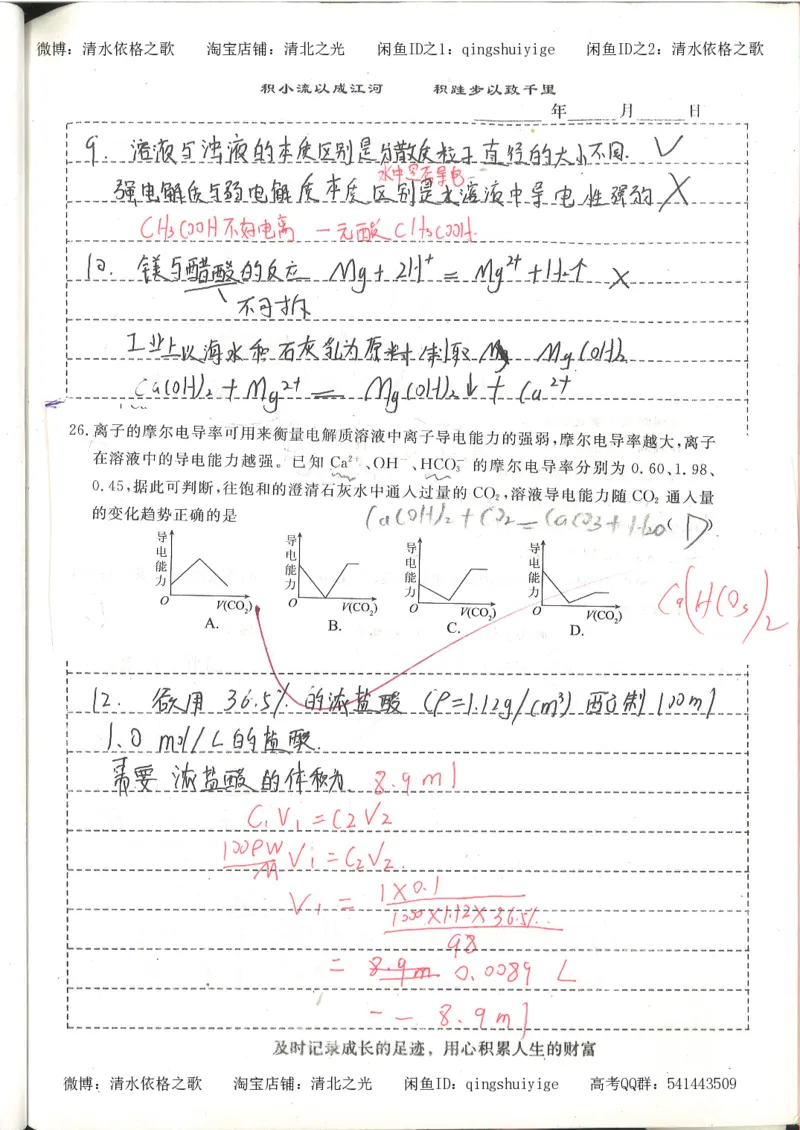 微博：清水依格之歌 淘宝店铺：清北之光 闲鱼ID之1：qingshuiyige 闲鱼ID之2：清水依格之歌
积小流以成江河 积跬步以致千里
年 月 日
9. 溶液与浊液的本质区别是分散质粒子直径的大小不同. ✓
水中是否导电
强电解质与弱电解质本质区别是水溶液中导电性强弱 ✗
CH₃COOH不好电离 一元酸CH₃COOH.
10. 镁与醋酸的反应 Mg+2H⁺=Mg²⁺+H₂↑ ✗
不可拆
工业上以海水和石灰乳为原料制取Mg Mg(OH)₂
Ca(OH)₂+Mg²⁺=Mg(OH)₂↓+Ca²⁺
26.离子的摩尔电导率可用来衡量电解质溶液中离子导电能力的强弱,摩尔电导率越大,离子
在溶液中的导电能力越强。已知 Ca²⁺、OH⁻、HCO₃⁻ 的摩尔电导率分别为 0.60、1.98、
0.45,据此可判断,往饱和的澄清石灰水中通入过量的 CO₂,溶液导电能力随 CO₂ 通入量
的变化趋势正确的是 Ca(OH)₂+CO₂=CaCO₃+H₂O ( D )
导电能力 O V(CO₂) A.
导电能力 O V(CO₂) B.
导电能力 O V(CO₂) C.
导电能力 O V(CO₂) D.
Ca(HCO₃)₂
12. 欲用 36.5% 的浓盐酸 (ρ=1.12g/cm³) 配制 100ml
1.0 mol/L的盐酸.
需要浓盐酸的体积为 8.9ml
C₁V₁=C₂V₂
1000ρW/M V₁=C₂V₂.
V₁ = 1×0.1
1000×1.12×36.5%
98
= 8.9m 0.0089 L
-- 8.9ml
及时记录成长的足迹，用心积累人生的财富
微博：清水依格之歌 淘宝店铺：清北之光 闲鱼ID：qingshuiyige 高考QQ群：541443509